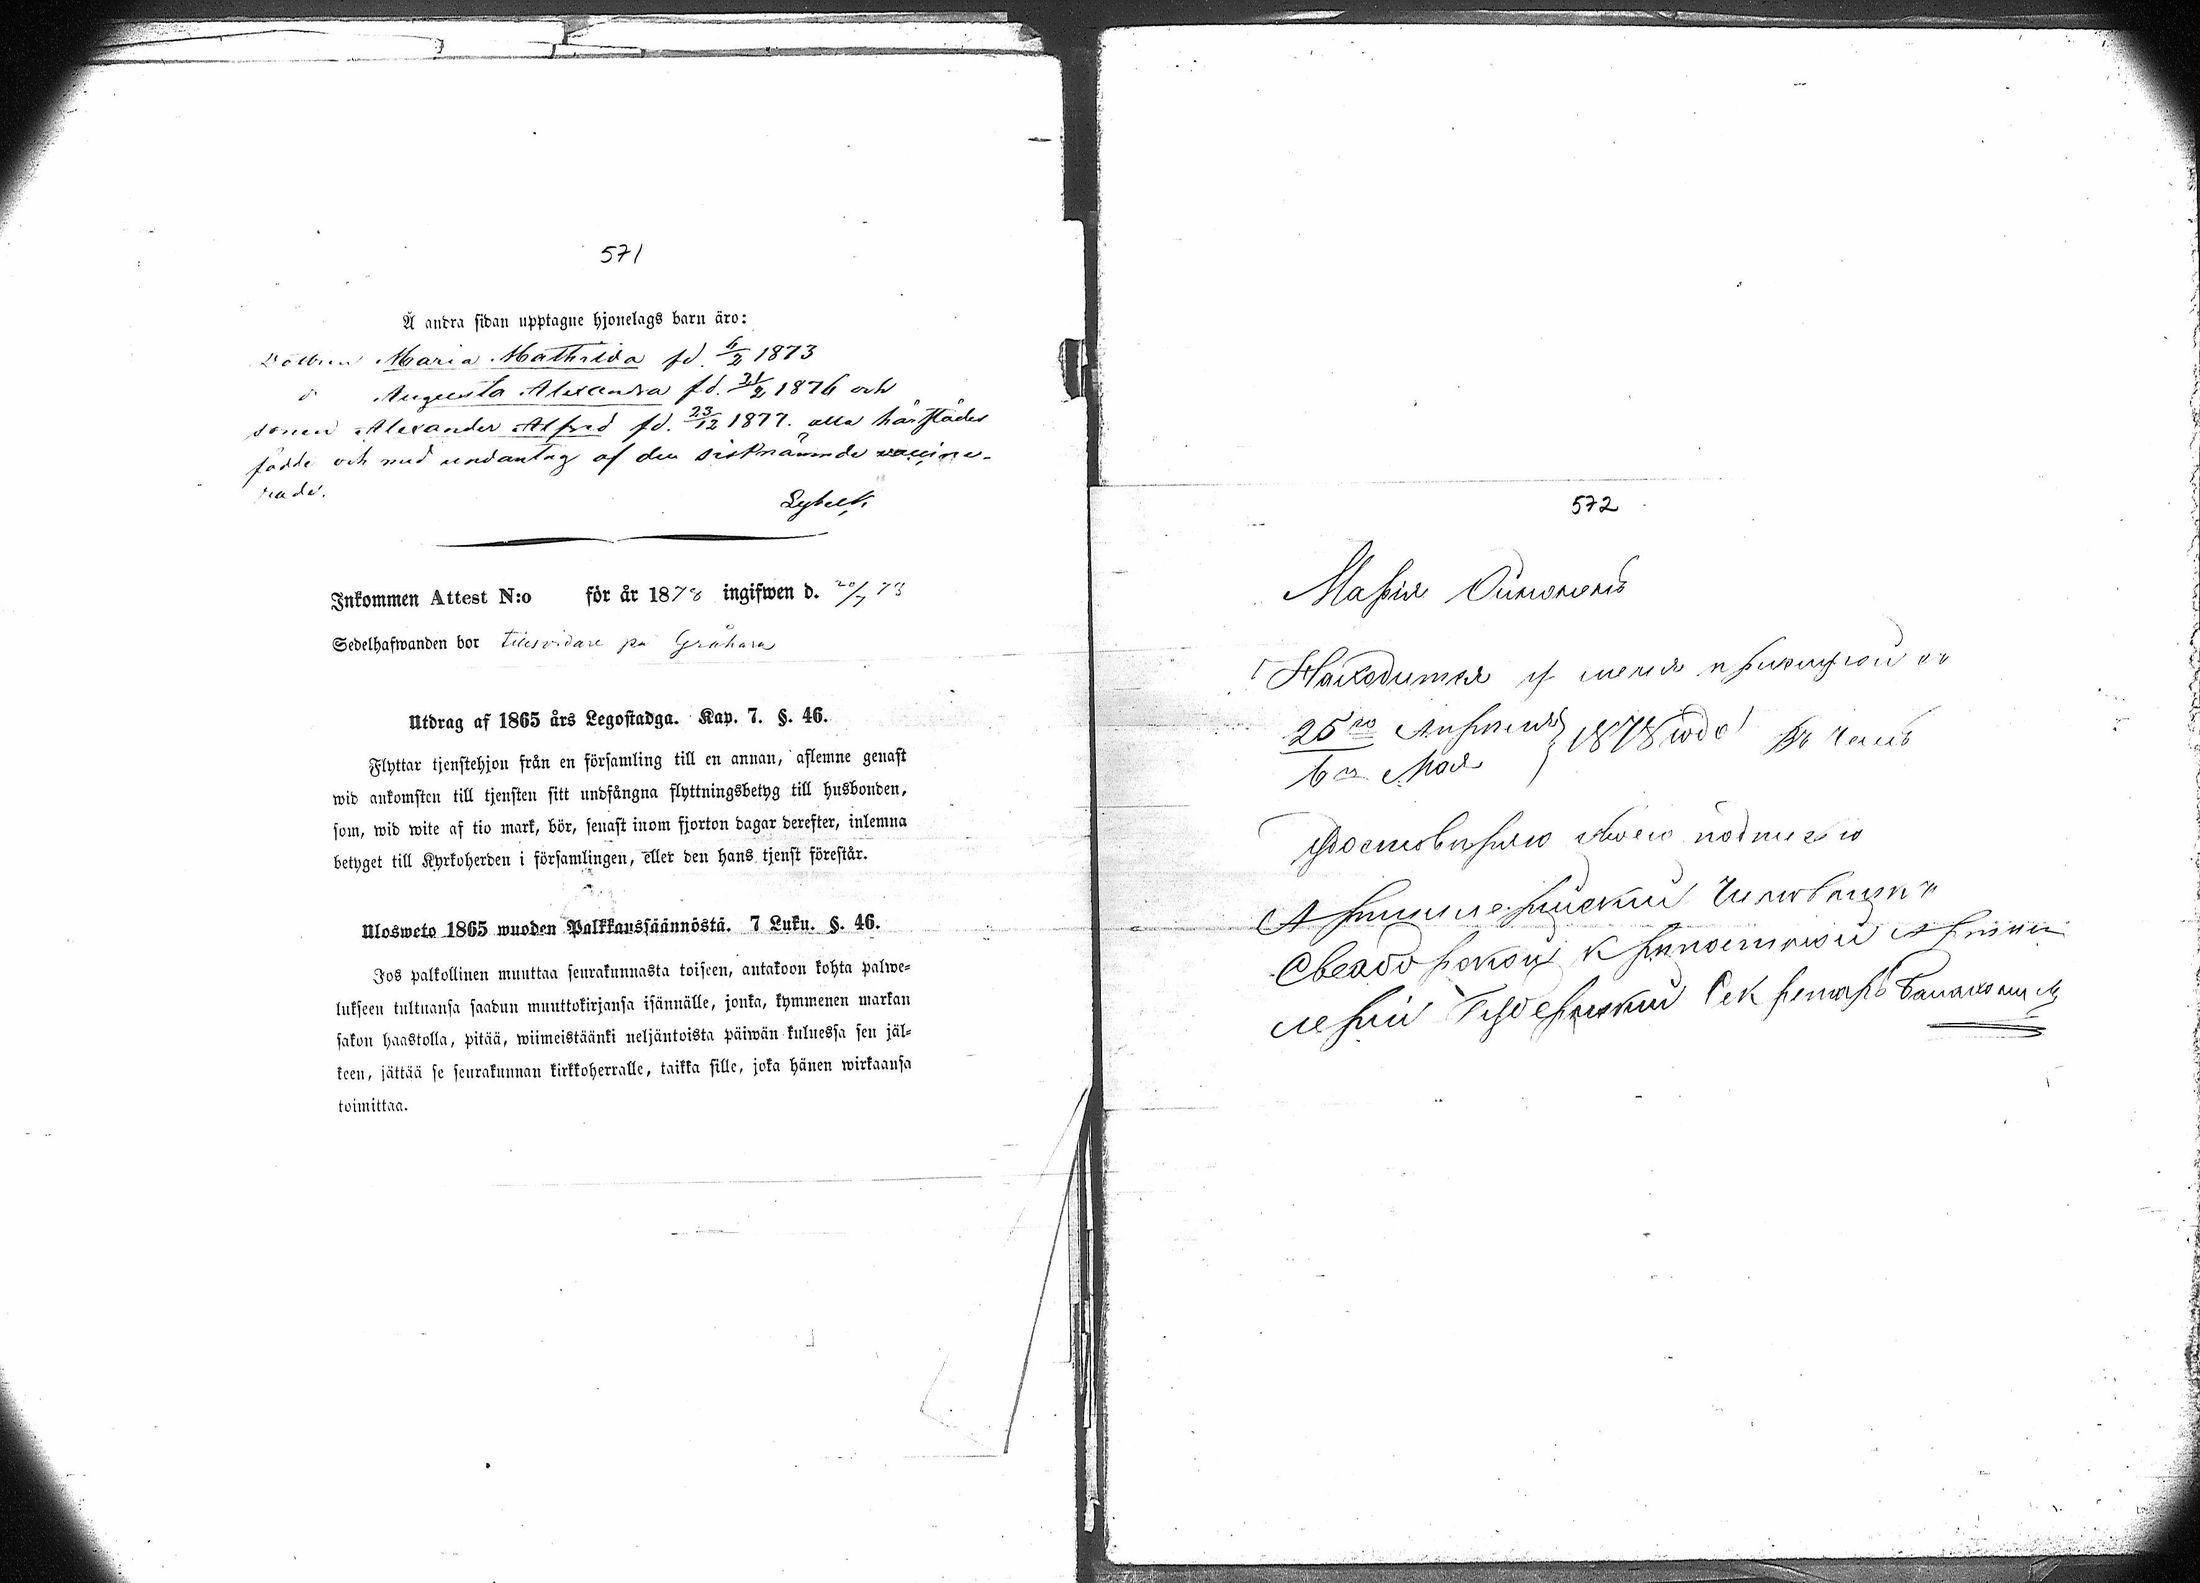 571
Å andra sidan upptagne hjonelags barn äro:
Maria Mathilda fd. 6/2 1873
d Augusta Alexandra fd. 21/2 1876 och
sonen Alexander Alfred fd. 23/12 1877. alla härstädes
födde och med undantag af den sistnämnde vaccine-
rade.
Lybeck
Inkommen Attest N:o för år 1878 ingifwen d. 20/7 78
Sedelhafwanden bor tillsvidare på Gråhara
Utdrag af 1865 års Legostadga. Kap. 7. §. 46.
Flyttar tjenstehjon från en församling till en annan, aflemne genast
wid ankomsten till tjensten sitt undfångna flyttningsbetyg till husbonden,
som, wid wite af tio mark, bör, senast inom fjorton dagar derefter, inlemna
betyget till Kyrkoherden i församlingen, eller den hans tjenst förestår.
Ulosweto 1865 wuoden Palkkaussäännöstä. 7 Luku. §. 46.
Jos palkollinen muuttaa seurakunnasta toiseen, antakoon kohta palwe=
lukseen tultuansa saadun muuttokirjansa isännälle, jonka, kymmenen markan
sakon haastolla, pitää, wiimeistäänki neljäntoista päiwän kuluessa sen jäl=
keen, jättää se seurakunnan kirkkoherralle, taikka sille, joka hänen wirkaansa
toimittaa.
572
Марія
Находится у меня прислугой
25го Апреля 1878 года въ чемъ
6го Мая
удостоверяю своею подписью
Артиллерійскій Чиновникъ
Свеаборгской крепостной Артил
леріи Губернскій Секретарь